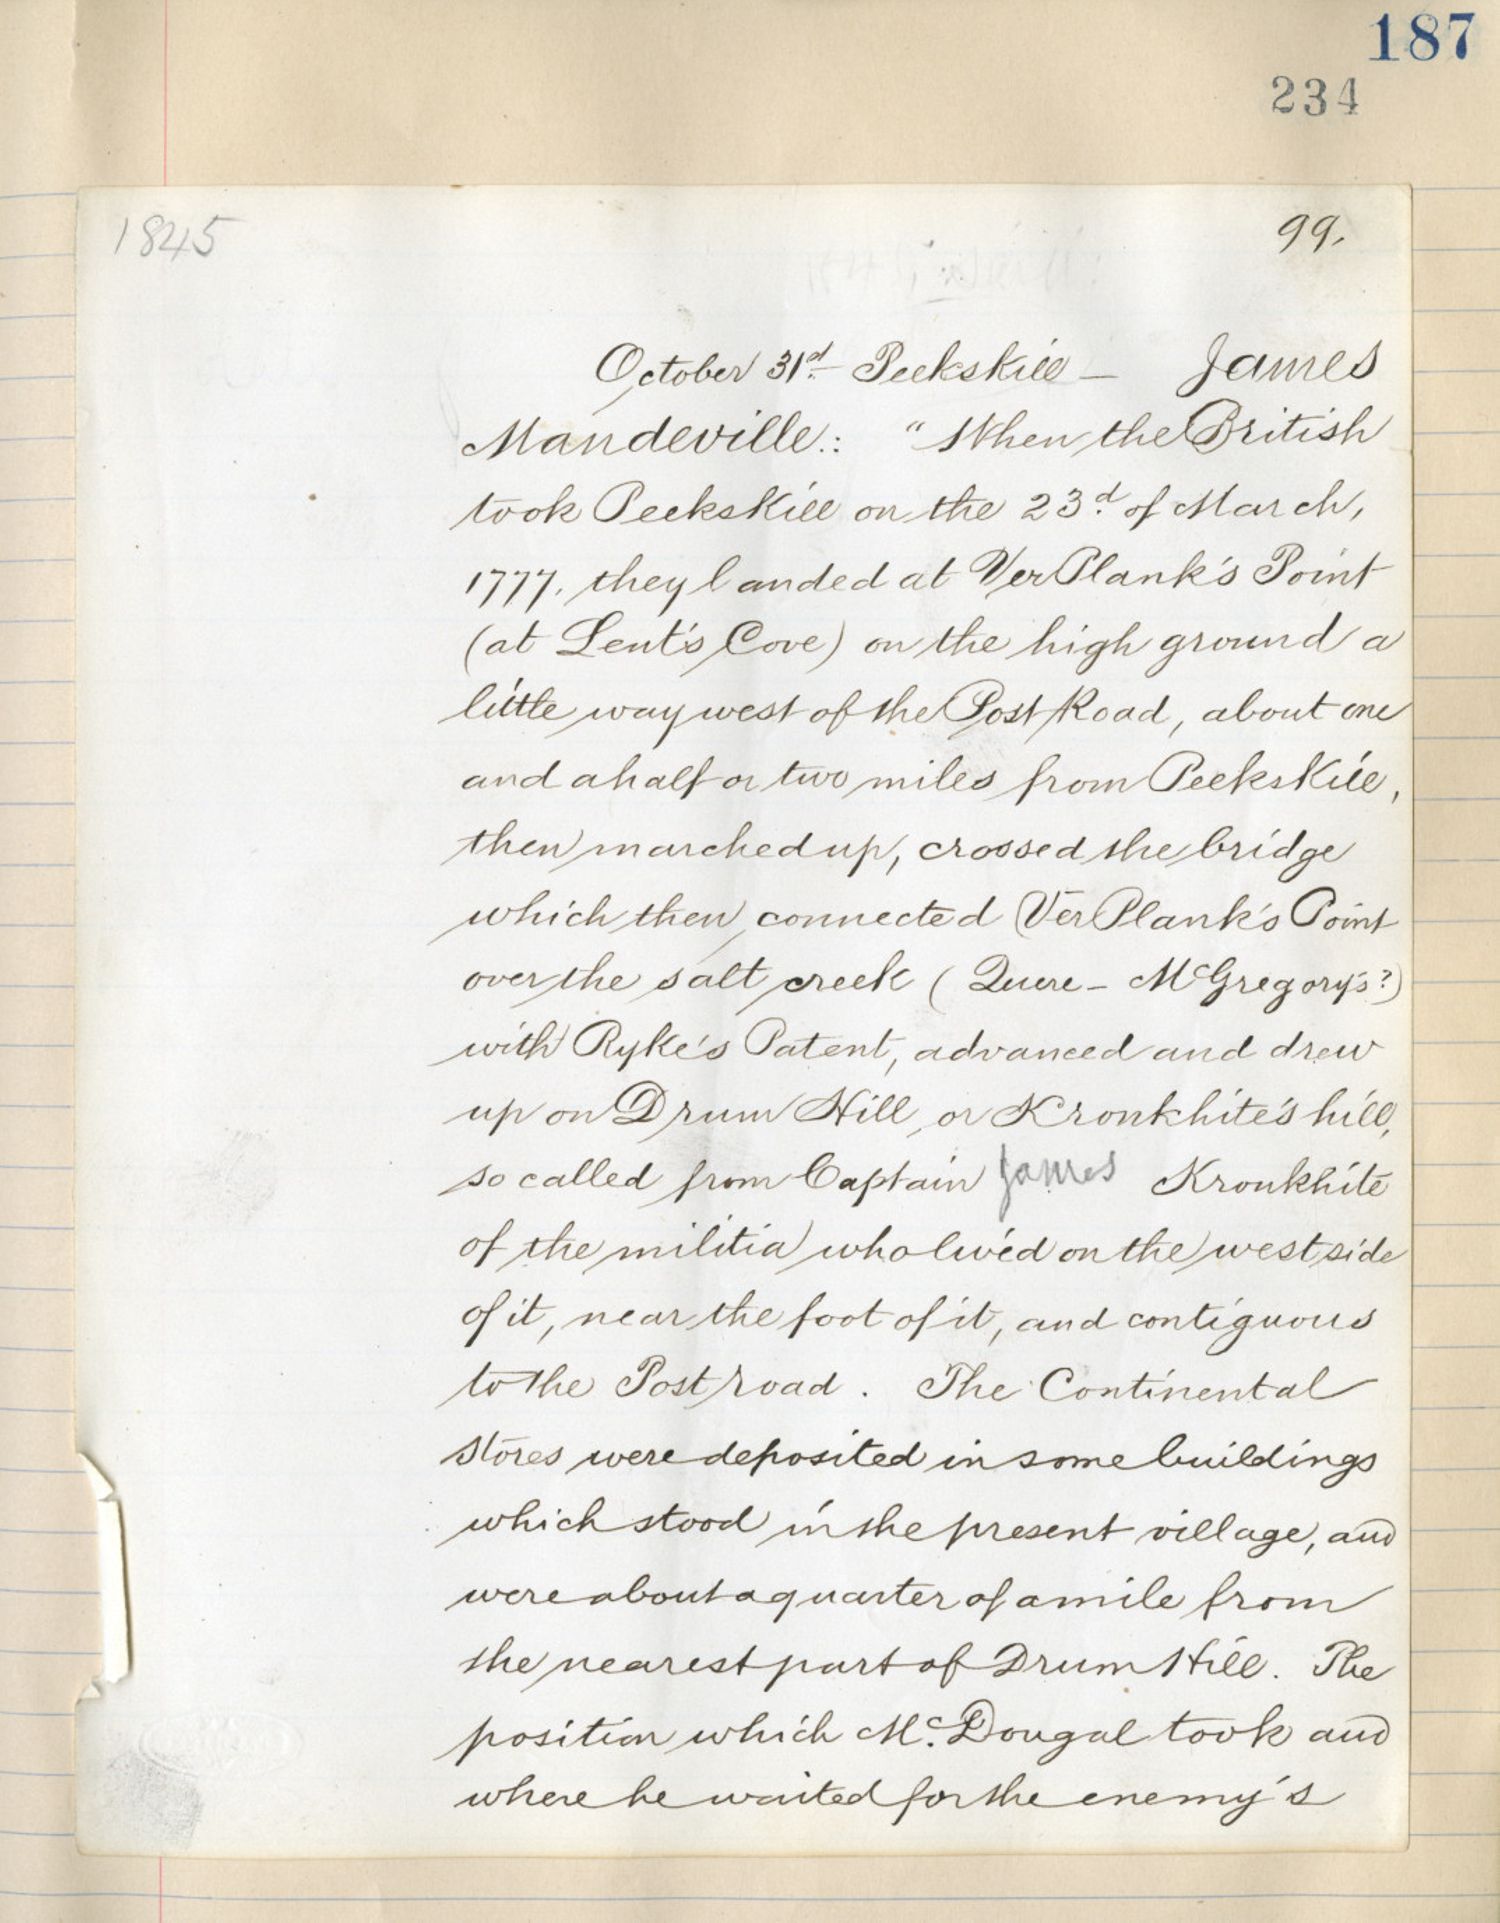 187
234
1845
99.
October 31st Peekskill - James
Mandeville.: "When the British
took Peekskill on the 23d. of March,
1777, they landed at VerPlank's Point
(at Lent's Cove) on the high ground a
little way west of the Post Road, about one
and a half or two miles from Peekskill,
then marched up, crossed the bridge
which then connected VerPlank's Point
over the salt creek (Quere - McGregory's?)
with Ryke's Patent, advanced and drew
up on Drum Hill, or Kronkhite's hill,
so called from Captain James Kronkhite
of the militia who lived on the west side
of it, near the foot of it, and contiguous
to the Post road. The Continental
stores were deposited in some buildings
which stood in the present village, and
were about a quarter of a mile from
the nearest part of Drum Hill. The
position which Mc.Dougal took and
where he waited for the enemy's